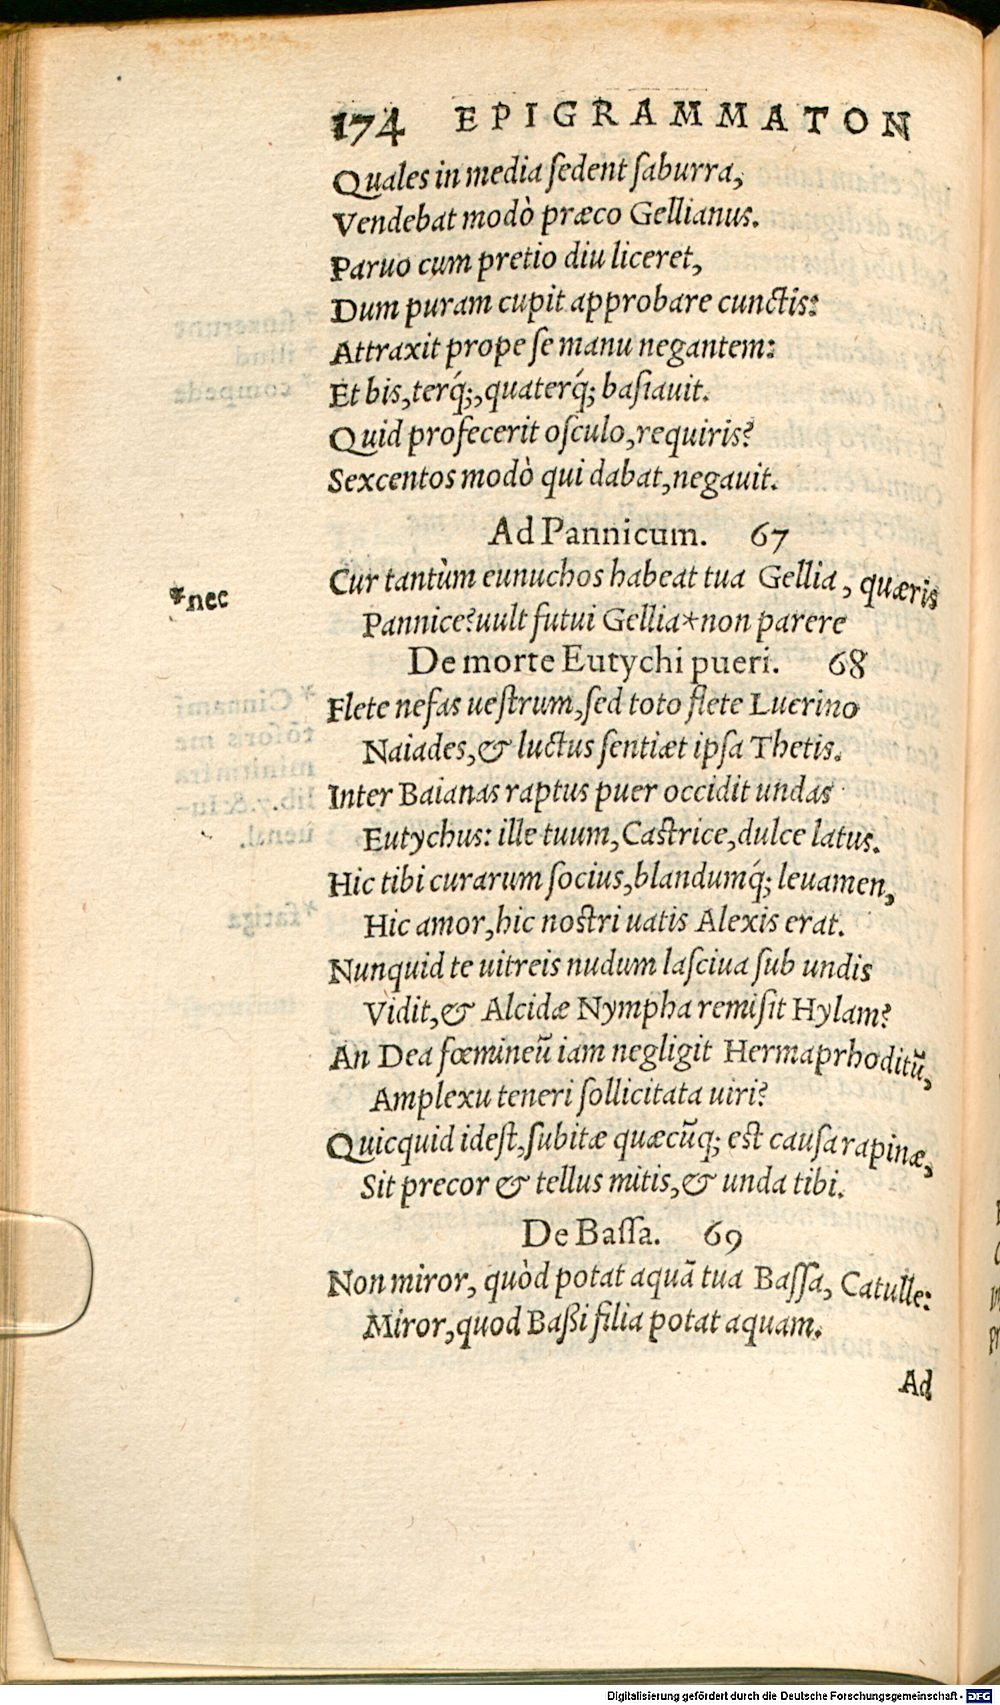 174 EPIGRAMMATON
Quales in media ſedent ſaburra,
Vendebat modò præco Gellianus.
Paruo cum pretio diu liceret,
Dum puram cupit approbare cunctis:
Attraxit prope ſe manu negantem:
Et bis, terq́;, quaterq́; baſiauit.
Quid profecerit oſculo, requiris?
Sexcentos modò qui dabat, negauit.
Ad Pannicum. 67
Cur tantùm eunuchos habeat tua Gellia, quæris
*nec
Pannice? uult futui Gellia*non parere
De morte Eutychi pueri. 68
Flete nefas ueſtrum, ſed toto flete Lucrino
Naiades, & luctus ſentiæt ipſa Thetis.
Inter Baianas raptus puer occidit undas
Eutychus: ille tuum, Caſtrice, dulce latus.
Hic tibi curarum ſocius, blandumq́; leuamen,
Hic amor, hic noſtri uatis Alexis erat.
Nunquid te uitreis nudum laſciua ſub undis
Vidit, & Alcidæ Nympha remiſit Hylam?
An Dea fœmineũ iam negligit Hermaprhoditũ,
Amplexu teneri ſollicitata uiri?
Quicquid id eſt, ſubitæ quæcũq; est cauſa rapinæ,
Sit precor & tellus mitis, & unda tibi.
De Baſſa. 69
Non miror, quòd potat aquã tua Baſſa, Catulle:
Miror, quod Baßi filia potat aquam.
Ad
Digitalisierung gefördert durch die Deutsche Forschungsgemeinschaft - DFG